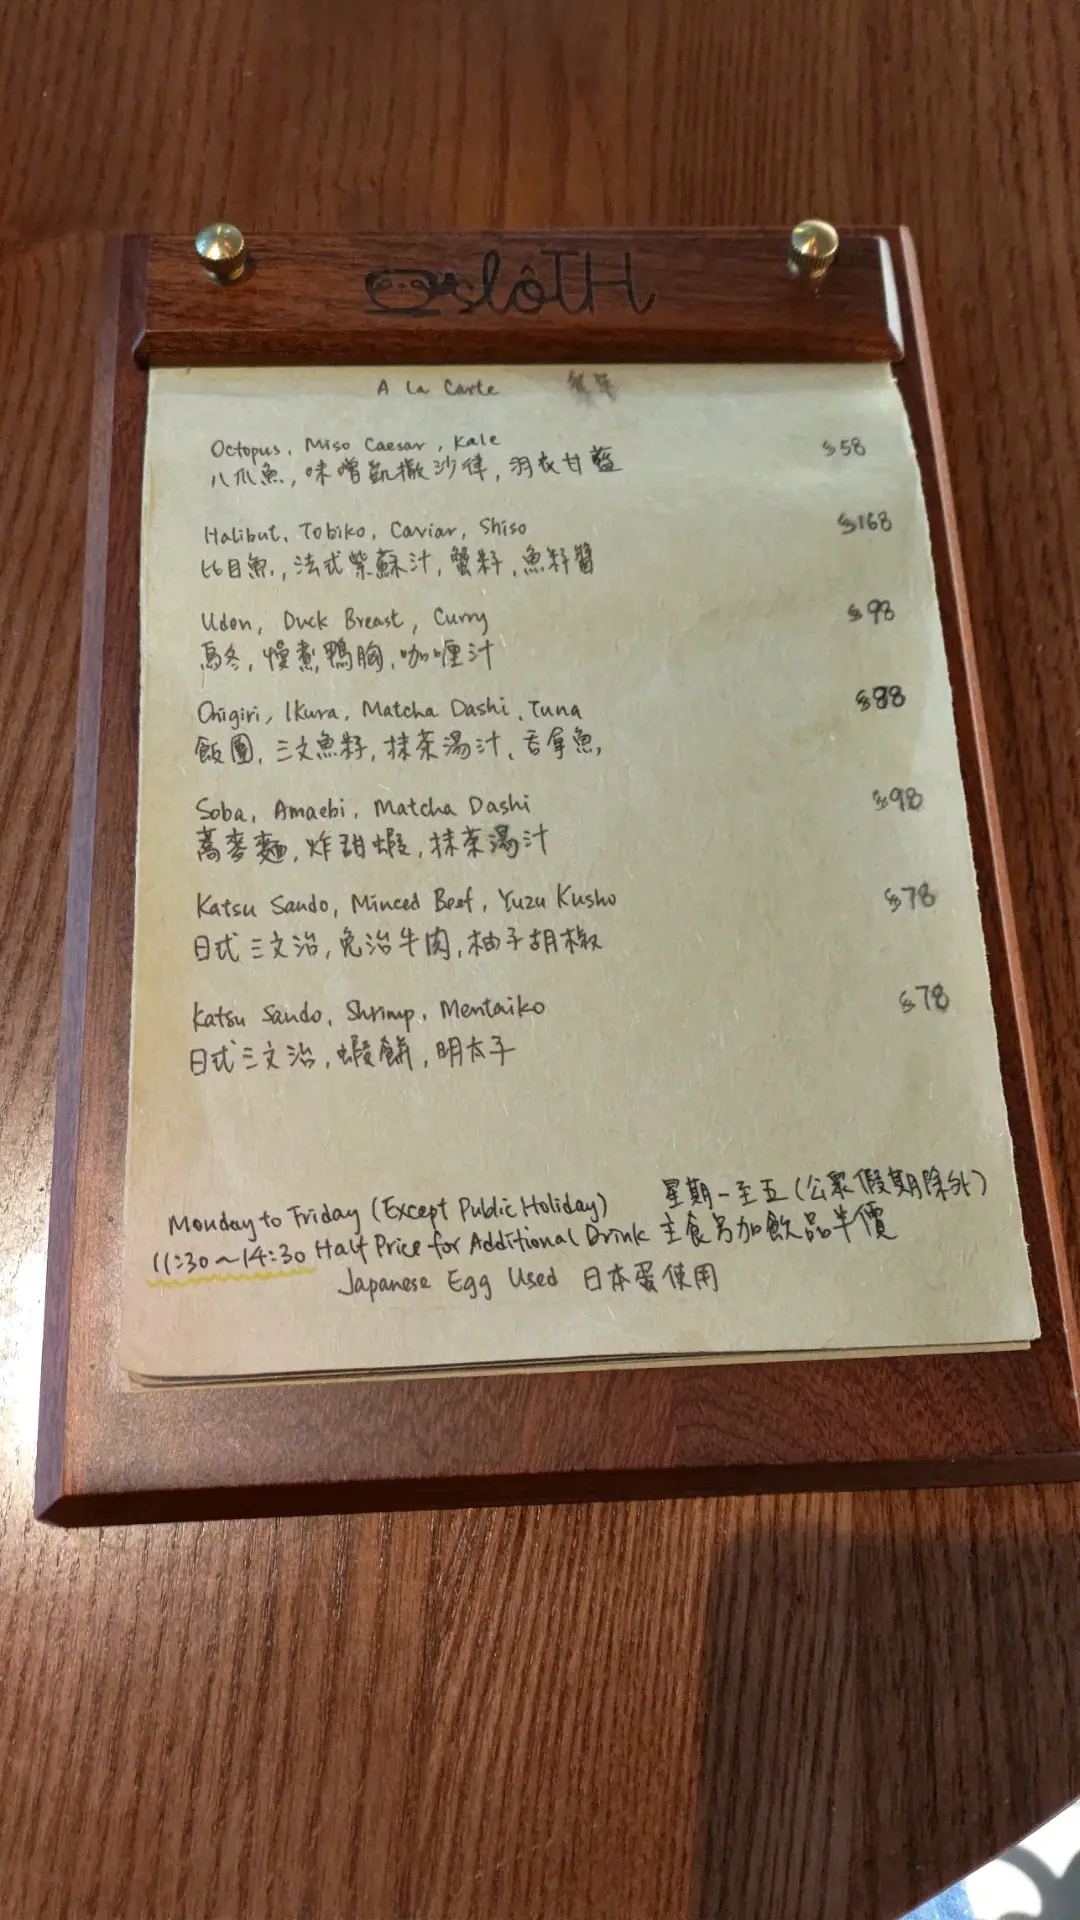 slôTH
A la Carte 餐單
Octopus, Miso Caesar, Kale $58
八爪魚, 味噌凱撒沙律, 羽衣甘藍
Halibut, Tobiko, Caviar, Shiso $168
比目魚, 法式紫蘇汁, 蟹籽, 魚籽醬
Udon, Duck Breast, Curry $98
烏冬, 慢煮鴨胸, 咖喱汁
Onigiri, Ikura, Matcha Dashi, Tuna $88
飯團, 三文魚籽, 抹茶湯汁, 吞拿魚
Soba, Amaebi, Matcha Dashi $98
蕎麥麵, 炸甜蝦, 抹茶湯汁
Katsu Sando, Minced Beef, Yuzu Kusho $78
日式三文治, 免治牛肉, 柚子胡椒
Katsu Sando, Shrimp, Mentaiko $78
日式三文治, 蝦餅, 明太子
Monday to Friday (Except Public Holiday) 星期一至五(公眾假期除外)
11:30~14:30 Half Price for Additional Drink 主食另加飲品半價
Japanese Egg Used 日本蛋使用